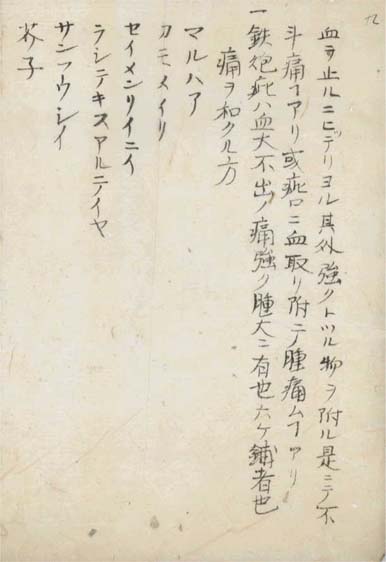 血ヲ止ルニヒッテリヨル其外強クトツル物ヲ附ル是ニテ不
斗痛ヿアリ或疵口ニ血取リ附テ腫痛ムヿアリ
一鉄炮疵ハ血大不出ノ痛強ク腫大ニ有也六ケ鋪者也
痛ヲ和クル方
マルハア
カモメイリ
セイメンリイニイ
ラシテキスアルニノイヤ
サンフウシイ
芥子